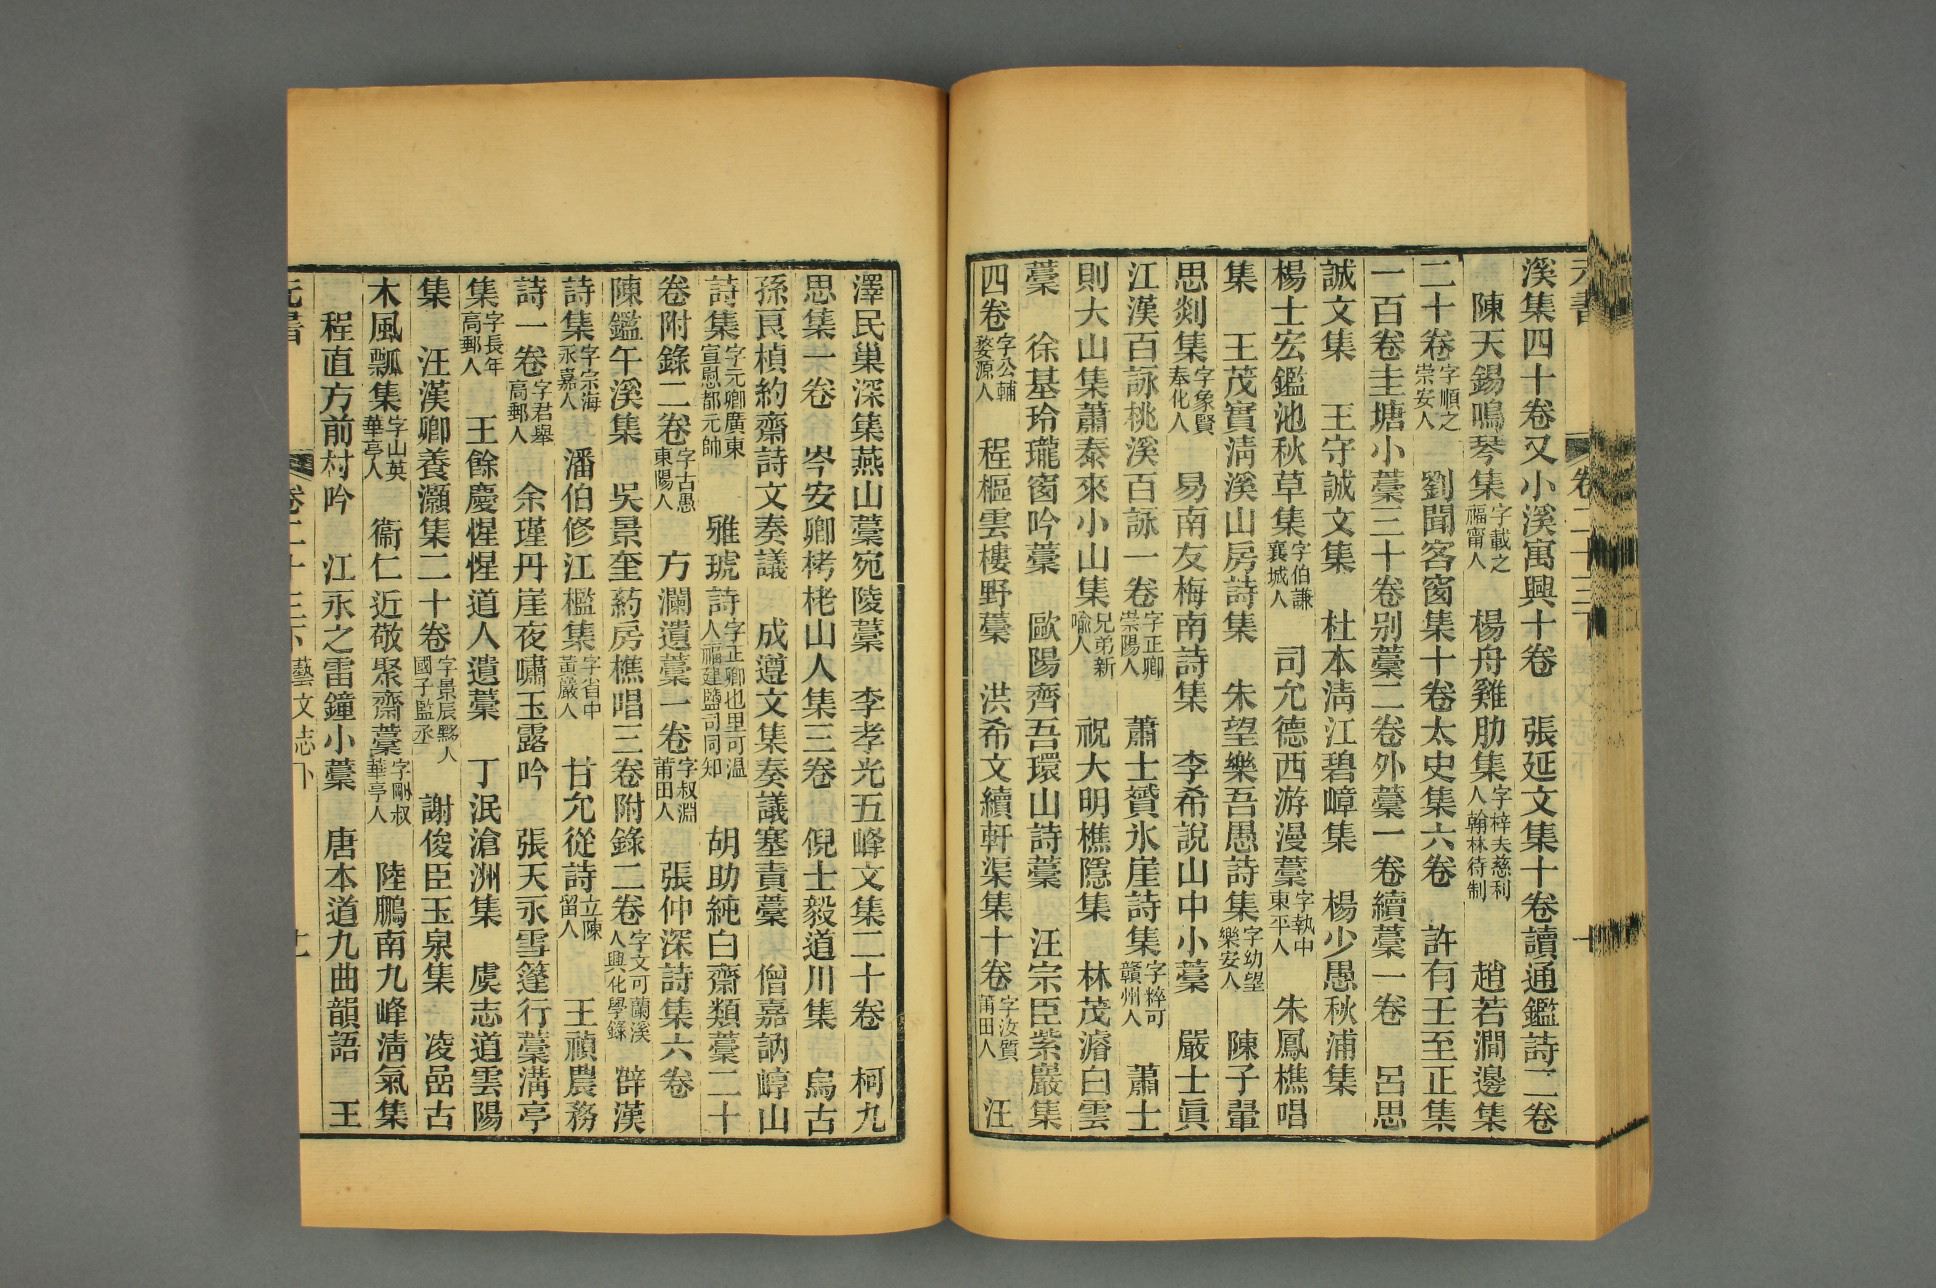 元書 卷二十三下 十
溪集四十卷又小溪寓興十卷 張延文集十卷讀通鑑詩二卷
陳天錫鳴琴集字載之福甯人 楊舟雞肋集字梓夫慈利人翰林待制 趙若澗邊集
二十卷字順之崇安人 劉聞容窗集十卷太史集六卷 許有壬至正集
一百卷圭塘小藁三十卷别藁二卷外藁一卷續藁一卷 呂思
誠文集 王守誠文集 杜本淸江碧嶂集 楊少愚秋浦集
楊士宏鑑池秋草集字伯謙襄城人 司允德西游漫藁字執中東平人 朱鳳樵唱
集 王茂實淸溪山房詩集 朱望樂吾愚詩集字幼望樂安人 陳子翬
思剡集字象賢奉化人 易南友梅南詩集 李希說山中小藁 嚴士眞
江漢百詠桃溪百詠一卷字正卿崇陽人 蕭士贇氷崖詩集字粹可贛州人 蕭士
則大山集蕭泰來小山集兄弟新喻人 祝大明樵隱集 林茂濬白雲
藁 徐基玲瓏窗吟藁 歐陽齊吾環山詩藁 汪宗臣紫巖集
四卷字公輔婺源人 程樞雲樓野藁 洪希文續軒渠集十卷字汝質莆田人 汪
澤民巢深集燕山藁宛陵藁 李孝光五峰文集二十卷 柯九
思集一卷 岑安卿栲栳山人集三卷 倪士毅道川集 烏古
孫良楨約齋詩文奏議 成遵文集奏議塞責藁 僧嘉訥崞山
詩集字元卿廣東宣慰都元帥 雅琥詩字正卿也里可温人福建鹽司同知 胡助純白齋類藁二十
卷附錄二卷字古愚東陽人 方瀾遺藁一卷字叔淵莆田人 張仲深詩集六卷
陳鑑午溪集 吳景奎葯房樵唱三卷附錄二卷字文可蘭溪人興化學錄 薛漢
詩集字宗海永嘉人 潘伯修江檻集字省中黃巖人 甘允從詩立陳留人 王禎農務
詩一卷字君舉高郵人 余瑾丹崖夜嘯玉露吟 張天永雪篷行藁溝亭
集字長年高郵人 王餘慶惺惺道人遺藁 丁泯滄洲集 虞志道雲陽
集 汪漢卿養灝集二十卷字景辰黟人國子監丞 謝俊臣玉泉集 凌嵒古
木風瓢集字山英華亭人 衞仁近敬聚齋藁字剛叔華亭人 陸鵬南九峰淸氣集
程直方前村吟 江永之雷鐘小藁 唐本道九曲韻語 王
元書 卷二十三下藝文志下 十一